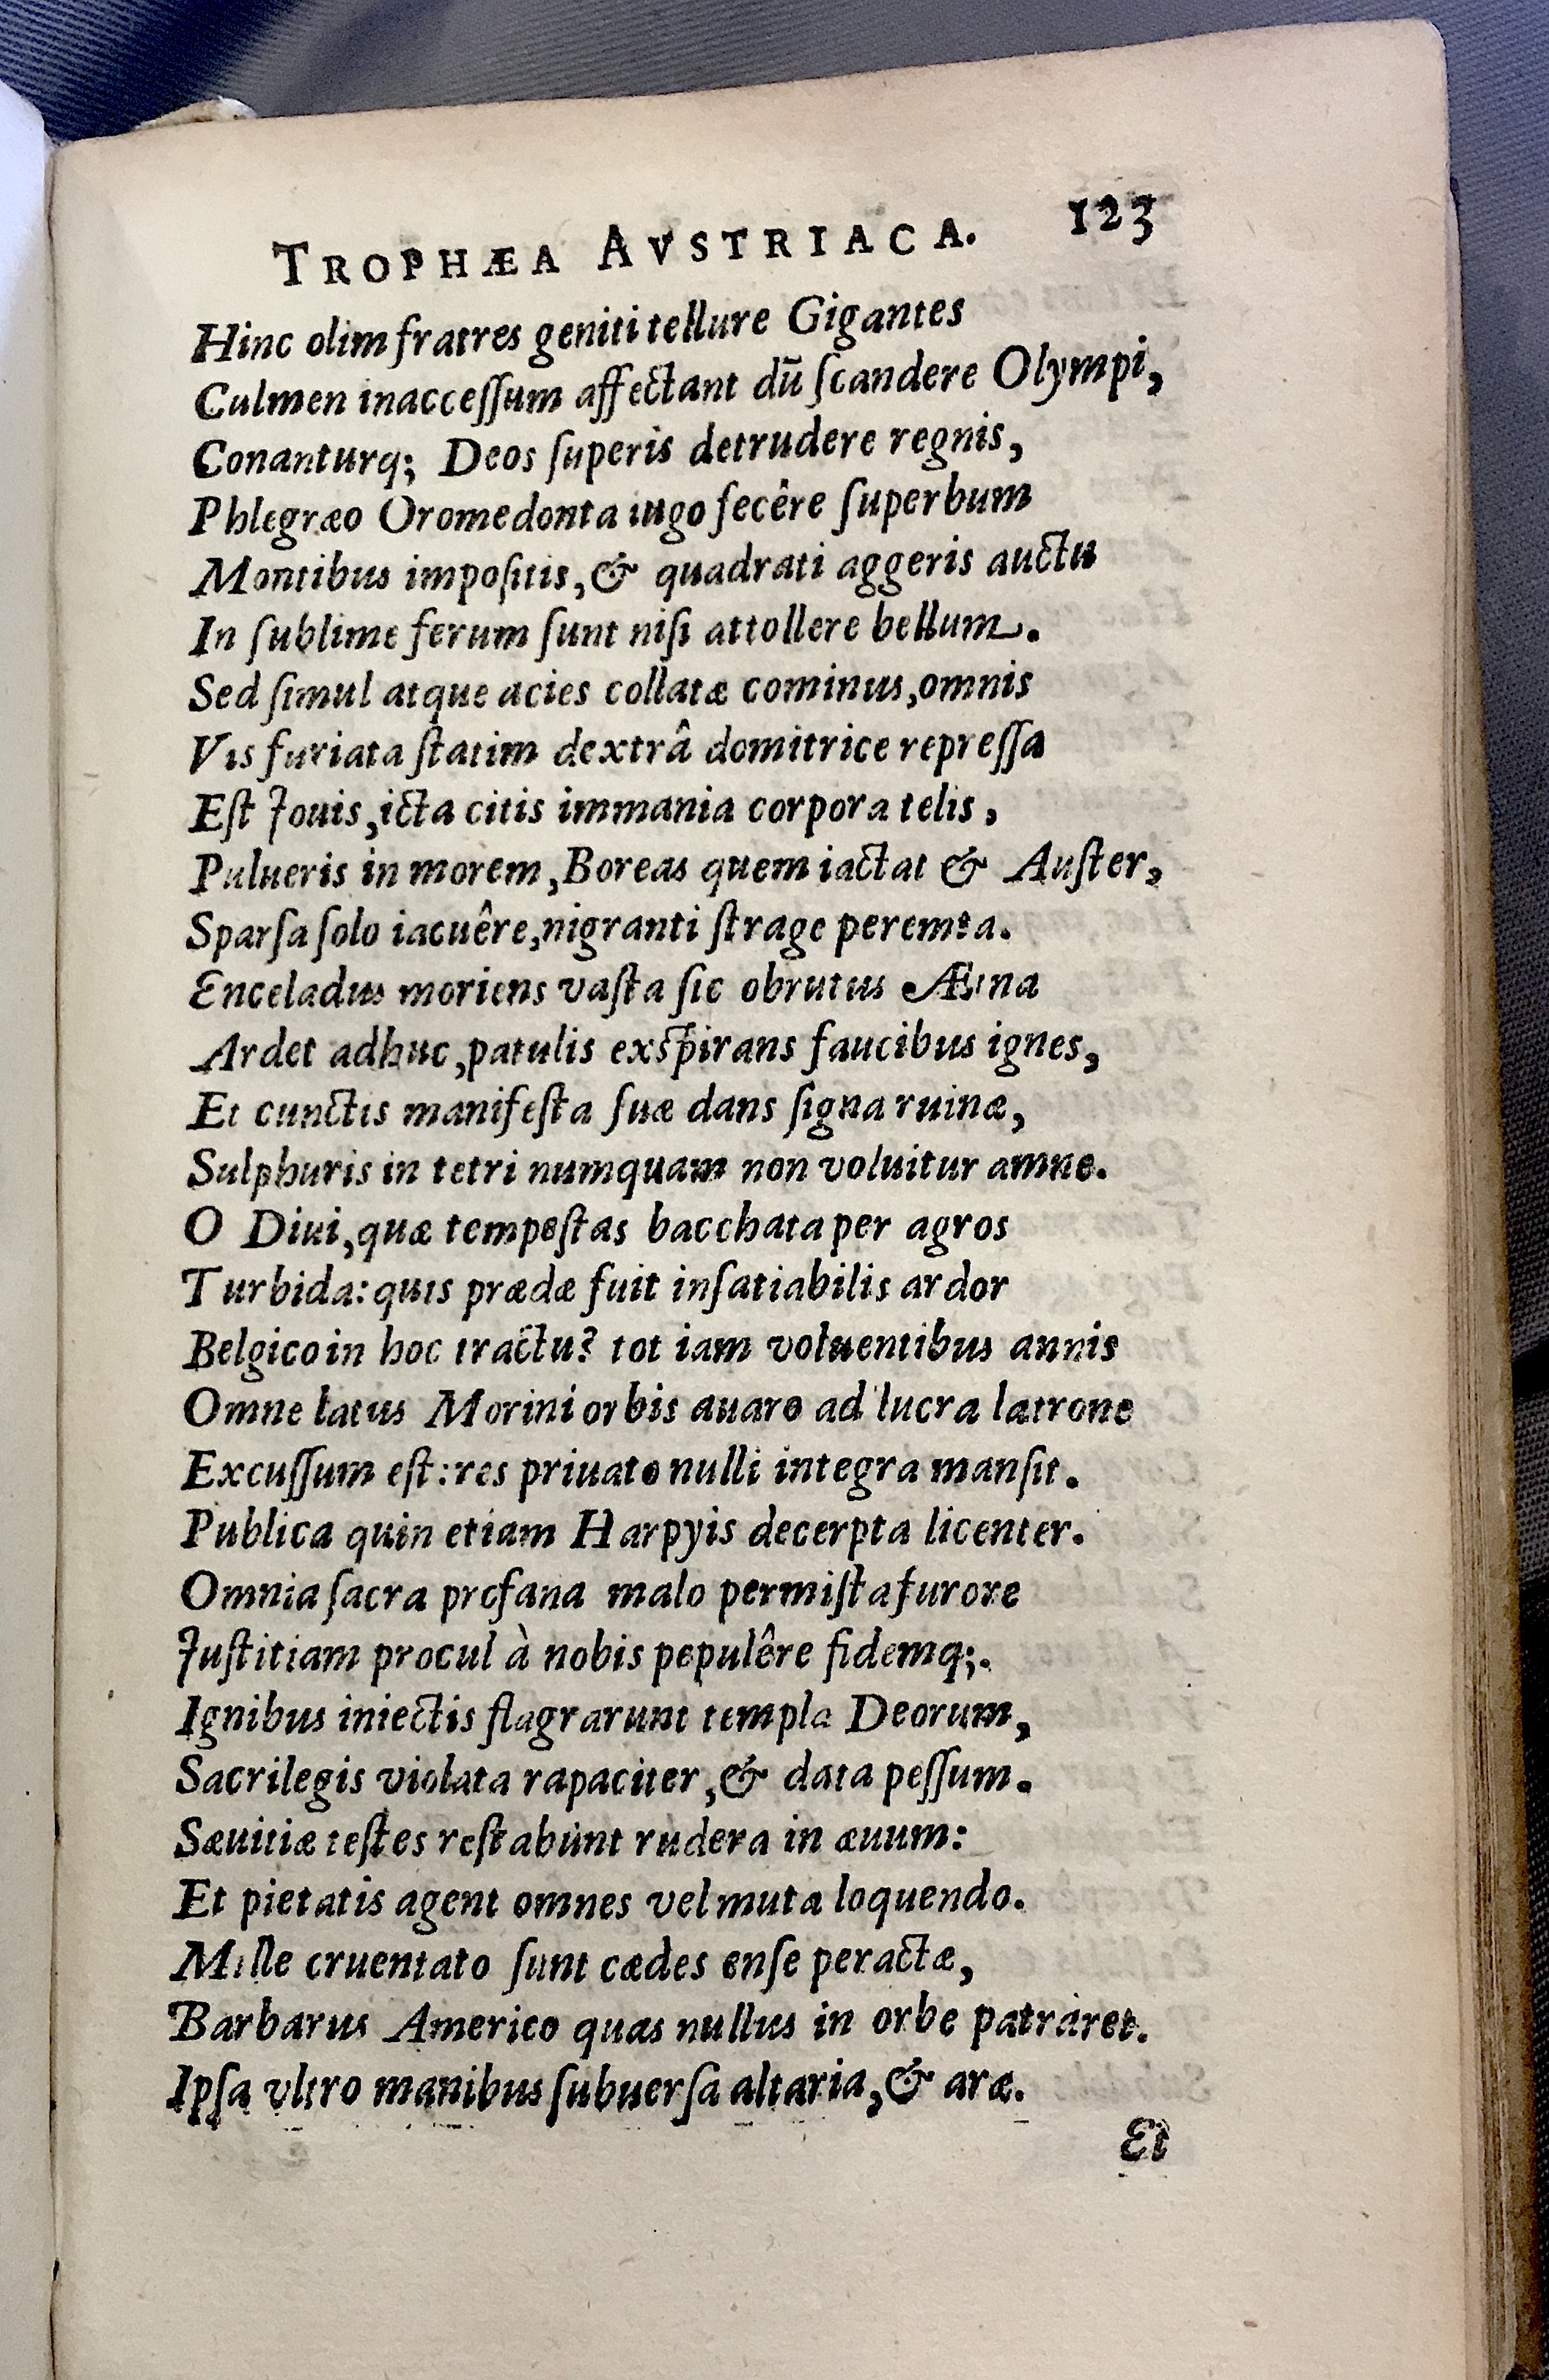 TROPHÆA AVSTRIACA. 123
Hinc olim fratres geniti tellure Gigantes
Culmen inacceſſum affectant dū ſcandere Olympi,
Conanturq; Deos ſuperis detrudere regnis,
Phlegræo Oromedonta iugo fecêre ſuperbum
Montibus impoſitis, & quadrati aggeris auctu
In ſublime ferum ſunt niſi attollere bellum.
Sed ſimul atque acies collatæ cominus, omnis
Vis furiata ſtatim dextrâ domitrice repreſſa
Eſt Jouis, icta citis immania corpora telis,
Pulueris in morem, Boreas quem iactat & Auſter,
Sparſa ſolo iacuêre, nigranti ſtrage peremta.
Enceladus moriens vaſta ſic obrutus Ætna
Ardet adhuc, patulis exſpirans faucibus ignes,
Et cunctis manifeſta ſuæ dans ſigna ruinæ,
Sulphuris in tetri numquam non voluitur amne.
O Diui, quæ tempeſtas bacchata per agros
Turbida: quis prædæ fuit inſatiabilis ardor
Belgico in hoc tractu? tot iam voluentibus annis
Omne latus Morini orbis auaro ad lucra latrone
Excuſſum eſt: res priuato nulli integra manſit.
Publica quin etiam Harpyis decerpta licenter.
Omnia ſacra profana malo permiſta furore
Juſtitiam procul à nobis pepulêre fidemq;.
Ignibus iniectis flagrarunt templa Deorum,
Sacrilegis violata rapaciter, & data peſſum.
Sæuitiæ teſtes reſtabunt rudera in æuum:
Et pietatis agent omnes vel muta loquendo.
Mille cruentato ſunt cædes enſe peractæ,
Barbarus Americo quas nullus in orbe patraret.
Ipſa vltro manibus ſubuerſa altaria, & aræ.
Et